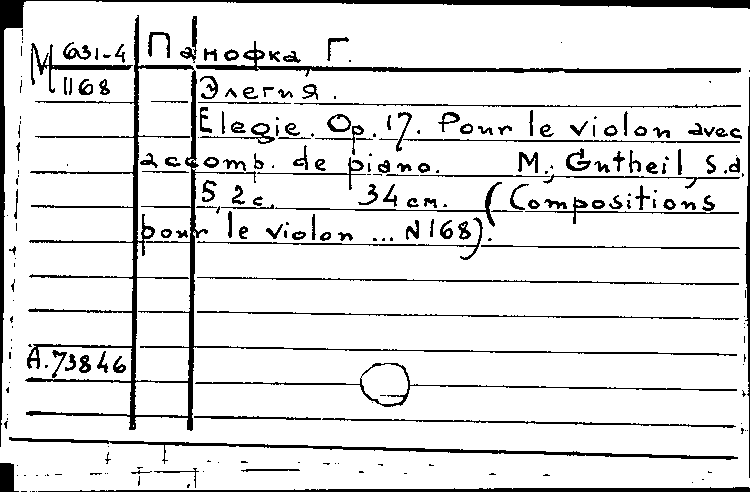 М 631-4 Панофка, Г.
1168 Элегия.
Elegie. Op. 17. Pour le violon avec
accomp. de piano. M., Gutheil, s.d
5, 2 с. 34 см. (Compositions
pour le violon ... N 168).
А.73846